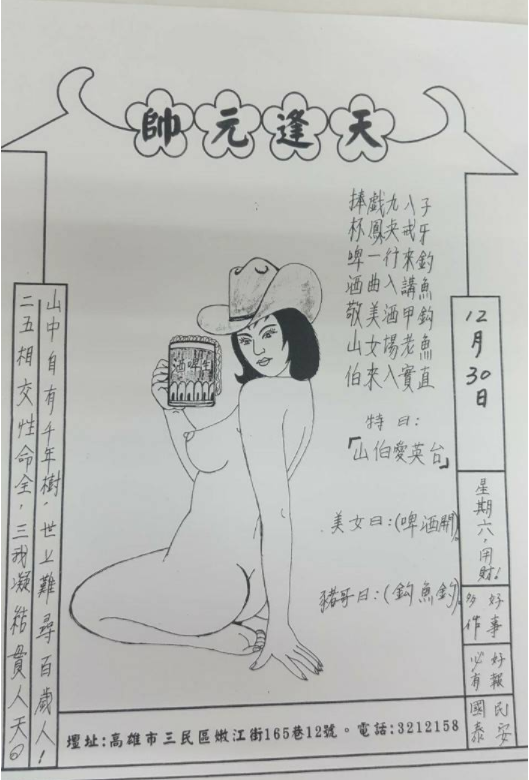 天逢元帥
12月30日
星期六，用財！
好事多作
好報必有
民安國泰
子牙釣魚鈎魚直
八戒來講甲老實
戲鳳一曲美女來
捧杯啤酒敬山伯
特曰：
「山伯愛英台」
美女曰：(啤酒開)
豬哥曰：(鈎魚釣)
生啤酒
山中自有千年樹，世上難尋百歲人！
二五相交性命全，三我凝結貫人天。
壇址:高雄市三民區嫩江街165巷12號。電話:3212158